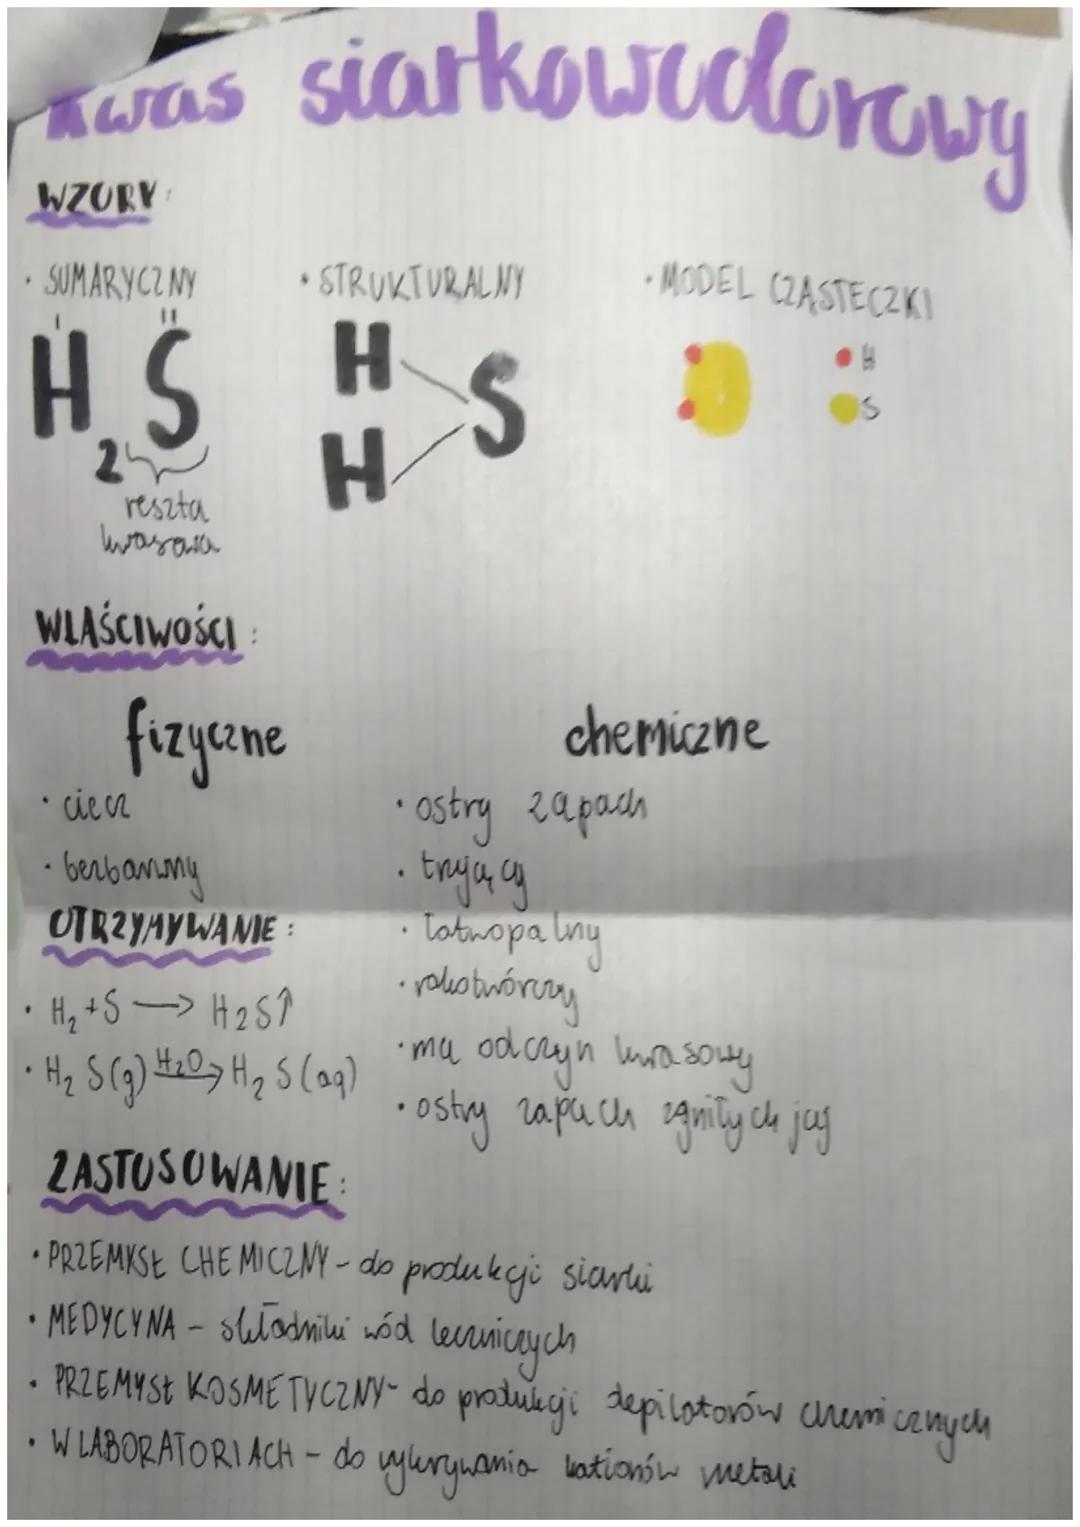 Kwas siarkowodorowy
WZORY:
· SUMARYCZNY · STRUKTURALNY · MODEL CZĄSTECZKI
I II
H₂S
reszta
kwasowa
H
H
S
H
S
WŁAŚCIWOŚCI:
fizyczne chemiczne
· ciecz
· bezbarwny
· ostry zapach
· trujący
· łatwopalny
· rakotwórczy
· ma odczyn kwasowy
· ostry zapach zgniłych jaj
OTRZYMYWANIE:
· H₂ + S → H₂S↑
· H₂S(g) H₂O→ H₂S(aq)
ZASTOSOWANIE:
· PRZEMYSŁ CHEMICZNY - do produkcji siarki
· MEDYCYNA - składniki wód leczniczych
· PRZEMYSŁ KOSMETYCZNY - do produkcji depilatorów chemicznych
· W LABORATORIACH - do wykrywania kationów metali